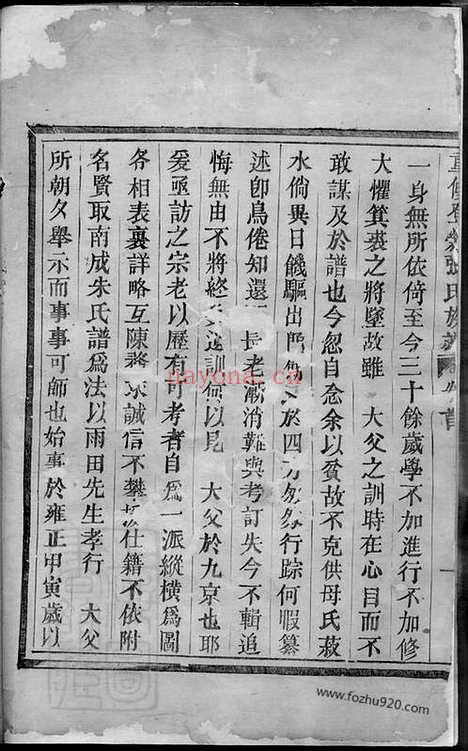 一身無所依倚至今三十餘歲學不加進行不加修
大懼箕裘之將墜故雖 大父之訓時在心目而不
敢謀及於譜也今忽自念余以貧故不克供母氏菽
水倘異日饑驅出門 於四方 行踪何暇纂
述卽鳥倦知還 長老漸消難與考訂失今不輯追
悔無由不將終 訓 以見 大父於九京也耶
爰亟訪之宗老以歷有可考者自爲一派縱橫爲圖
各相表裏詳略互陳 求誠信不攀 仕籍不依附
名賢取南成朱氏譜爲法以雨田先生孝行 大父
所朝夕舉示而事事可師也始事於雍正甲寅歲以
nayona.cn
www.fozhu920.com